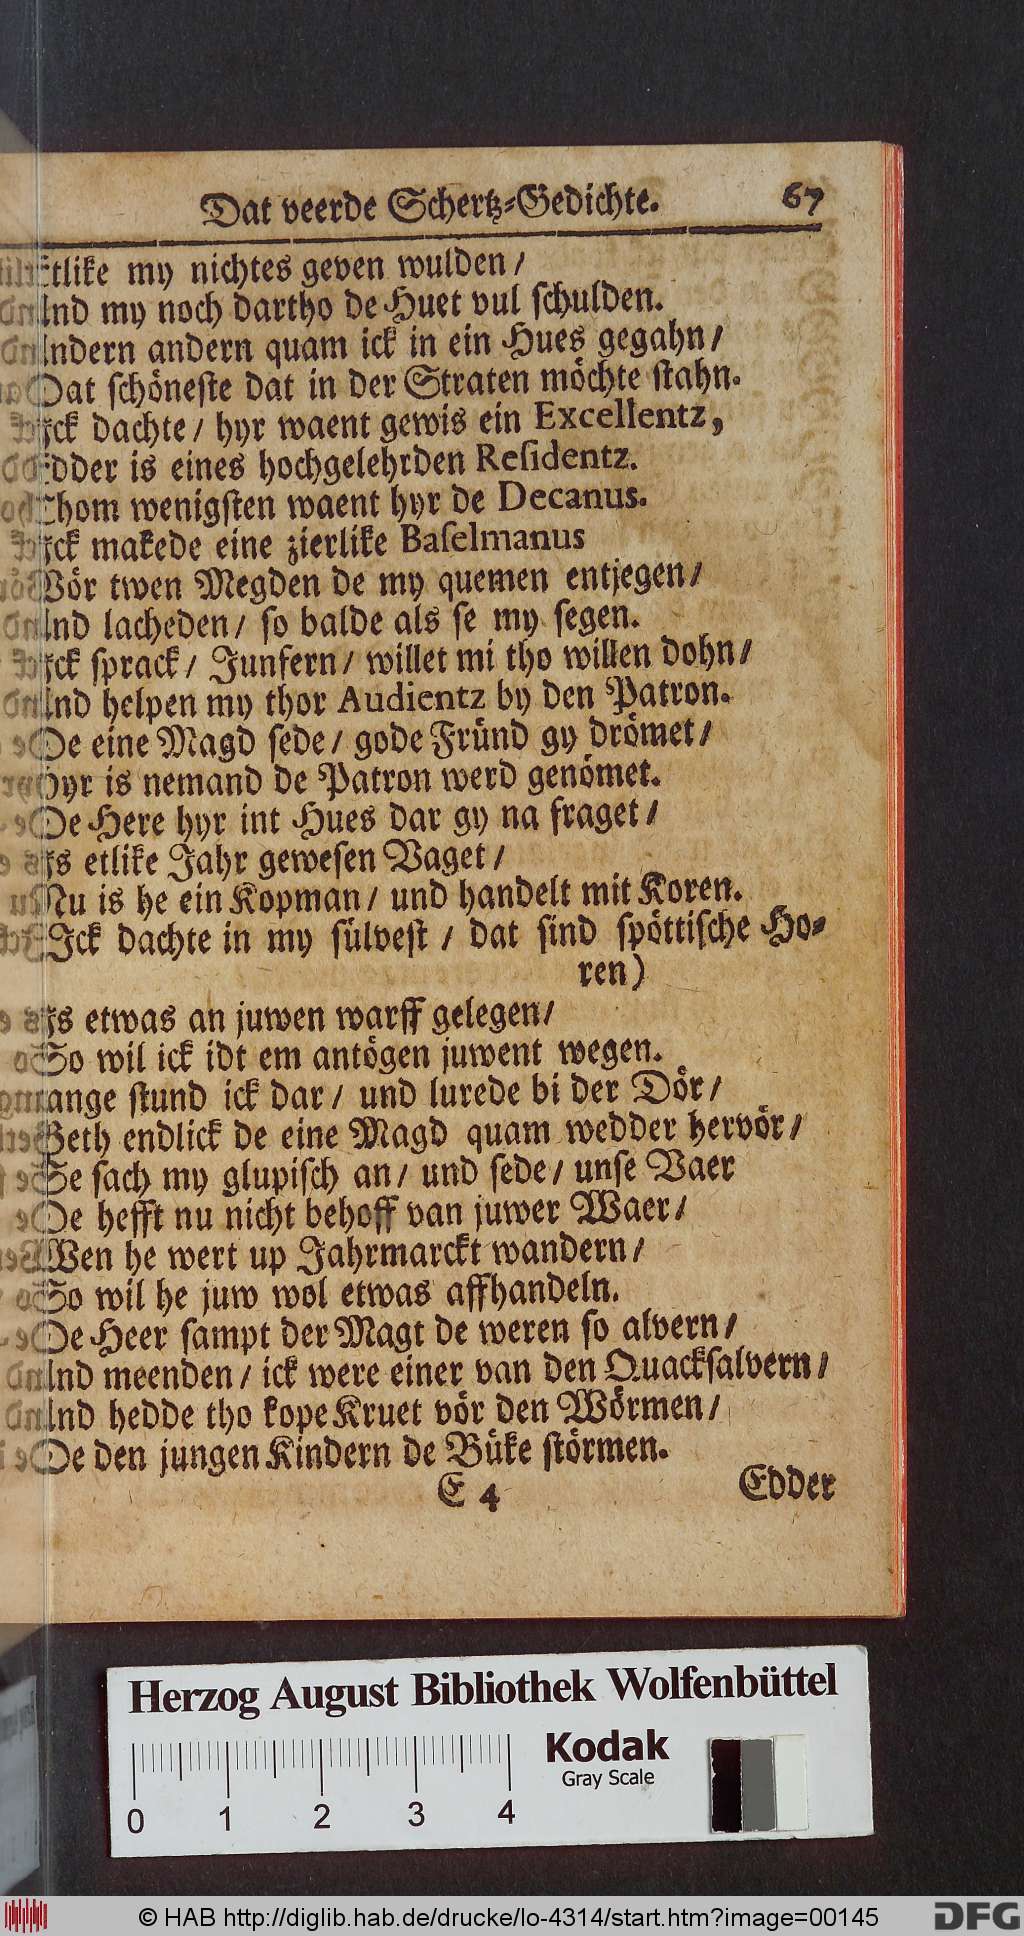 Dat veerde Schertz-Gedichte. 67
Etlike my nichtes geven wulden /
Und my noch dartho de Huet vul schulden.
Undern andern quam ick in ein Hues gegahn /
Dat schöneste dat in der Straten möchte stahn.
Ick dachte / hyr waent gewis ein Excellentz,
Edder is eines hochgelehrden Residentz.
Thom wenigsten waent hyr de Decanus.
Ick makede eine zierlike Baselmanus
Vör twen Megden de my quemen entjegen /
Und lacheden / so balde als se my segen.
Ick sprack / Junfern / willet mi tho willen dohn /
Und helpen my thor Audientz by den Patron.
De eine Magd sede / gode Fründ gy drömet /
Hyr is nemand de Patron werd genömet.
De Here hyr int Hues dar gy na fraget /
Is etlike Jahr gewesen Vaget /
Nu is he ein Kopman / und handelt mit Koren.
(Ick dachte in my sülvest / dat sind spöttische Ho-
ren)
Is etwas an juwen warff gelegen /
So wil ick idt em antögen juwent wegen.
Lange stund ick dar / und lurede bi der Dör /
Beth endlick de eine Magd quam wedder hervör /
Se sach my glupisch an / und sede / unse Vaer
De hefft nu nicht behoff van juwer Waer /
Wen he wert up Jahrmarckt wandern /
So wil he juw wol etwas affhandeln.
De Heer sampt der Magt de weren so alvern /
Und meenden / ick were einer van den Quacksalvern /
Und hedde tho kope Kruet vör den Wörmen /
De den jungen Kindern de Büke störmen.
E 4 Edder
Herzog August Bibliothek Wolfenbüttel
Kodak
Gray Scale
0 1 2 3 4
© HAB http://diglib.hab.de/drucke/lo-4314/start.htm?image=00145
DFG